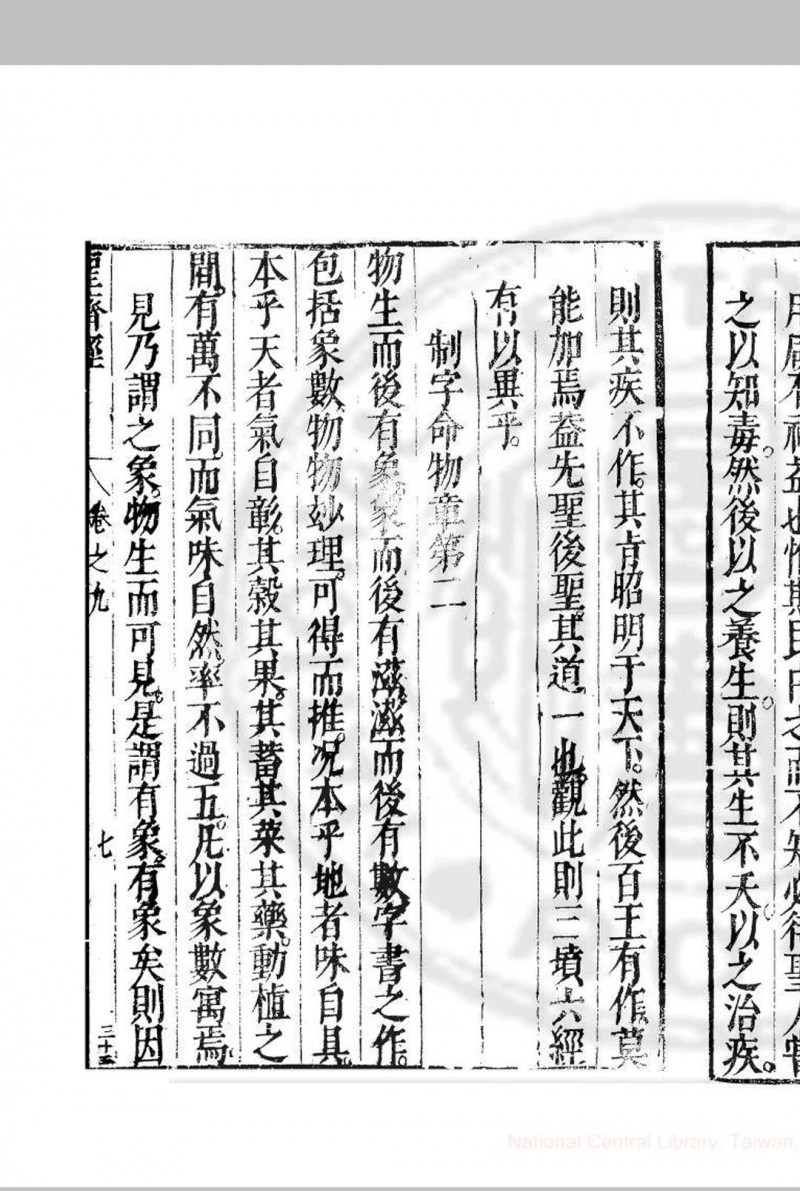 之以知毒。然後以之養生。則其生不夭。以之治疾。
則其疾不作。其肯昭明于天下。然後百王有作。莫
能加焉。葢先聖後聖。其道一也。觀此則三墳六經
有以異乎。
制字命物章第二
物生而後有象。象而後有滋。滋而後有數。字書之作。
包括象數。物物妙理。可得而推。况本乎地者味自具。
本乎天者氣自彰。其糓其果。其蓄其菜其藥。動植之
間。有萬不同。而氣味自然率不過五。凡以象數寓焉。
見乃謂之象。物生而可見。是謂有象。有象矣則因
聖濟經 卷之九 七
National Central Library, Taiwan.